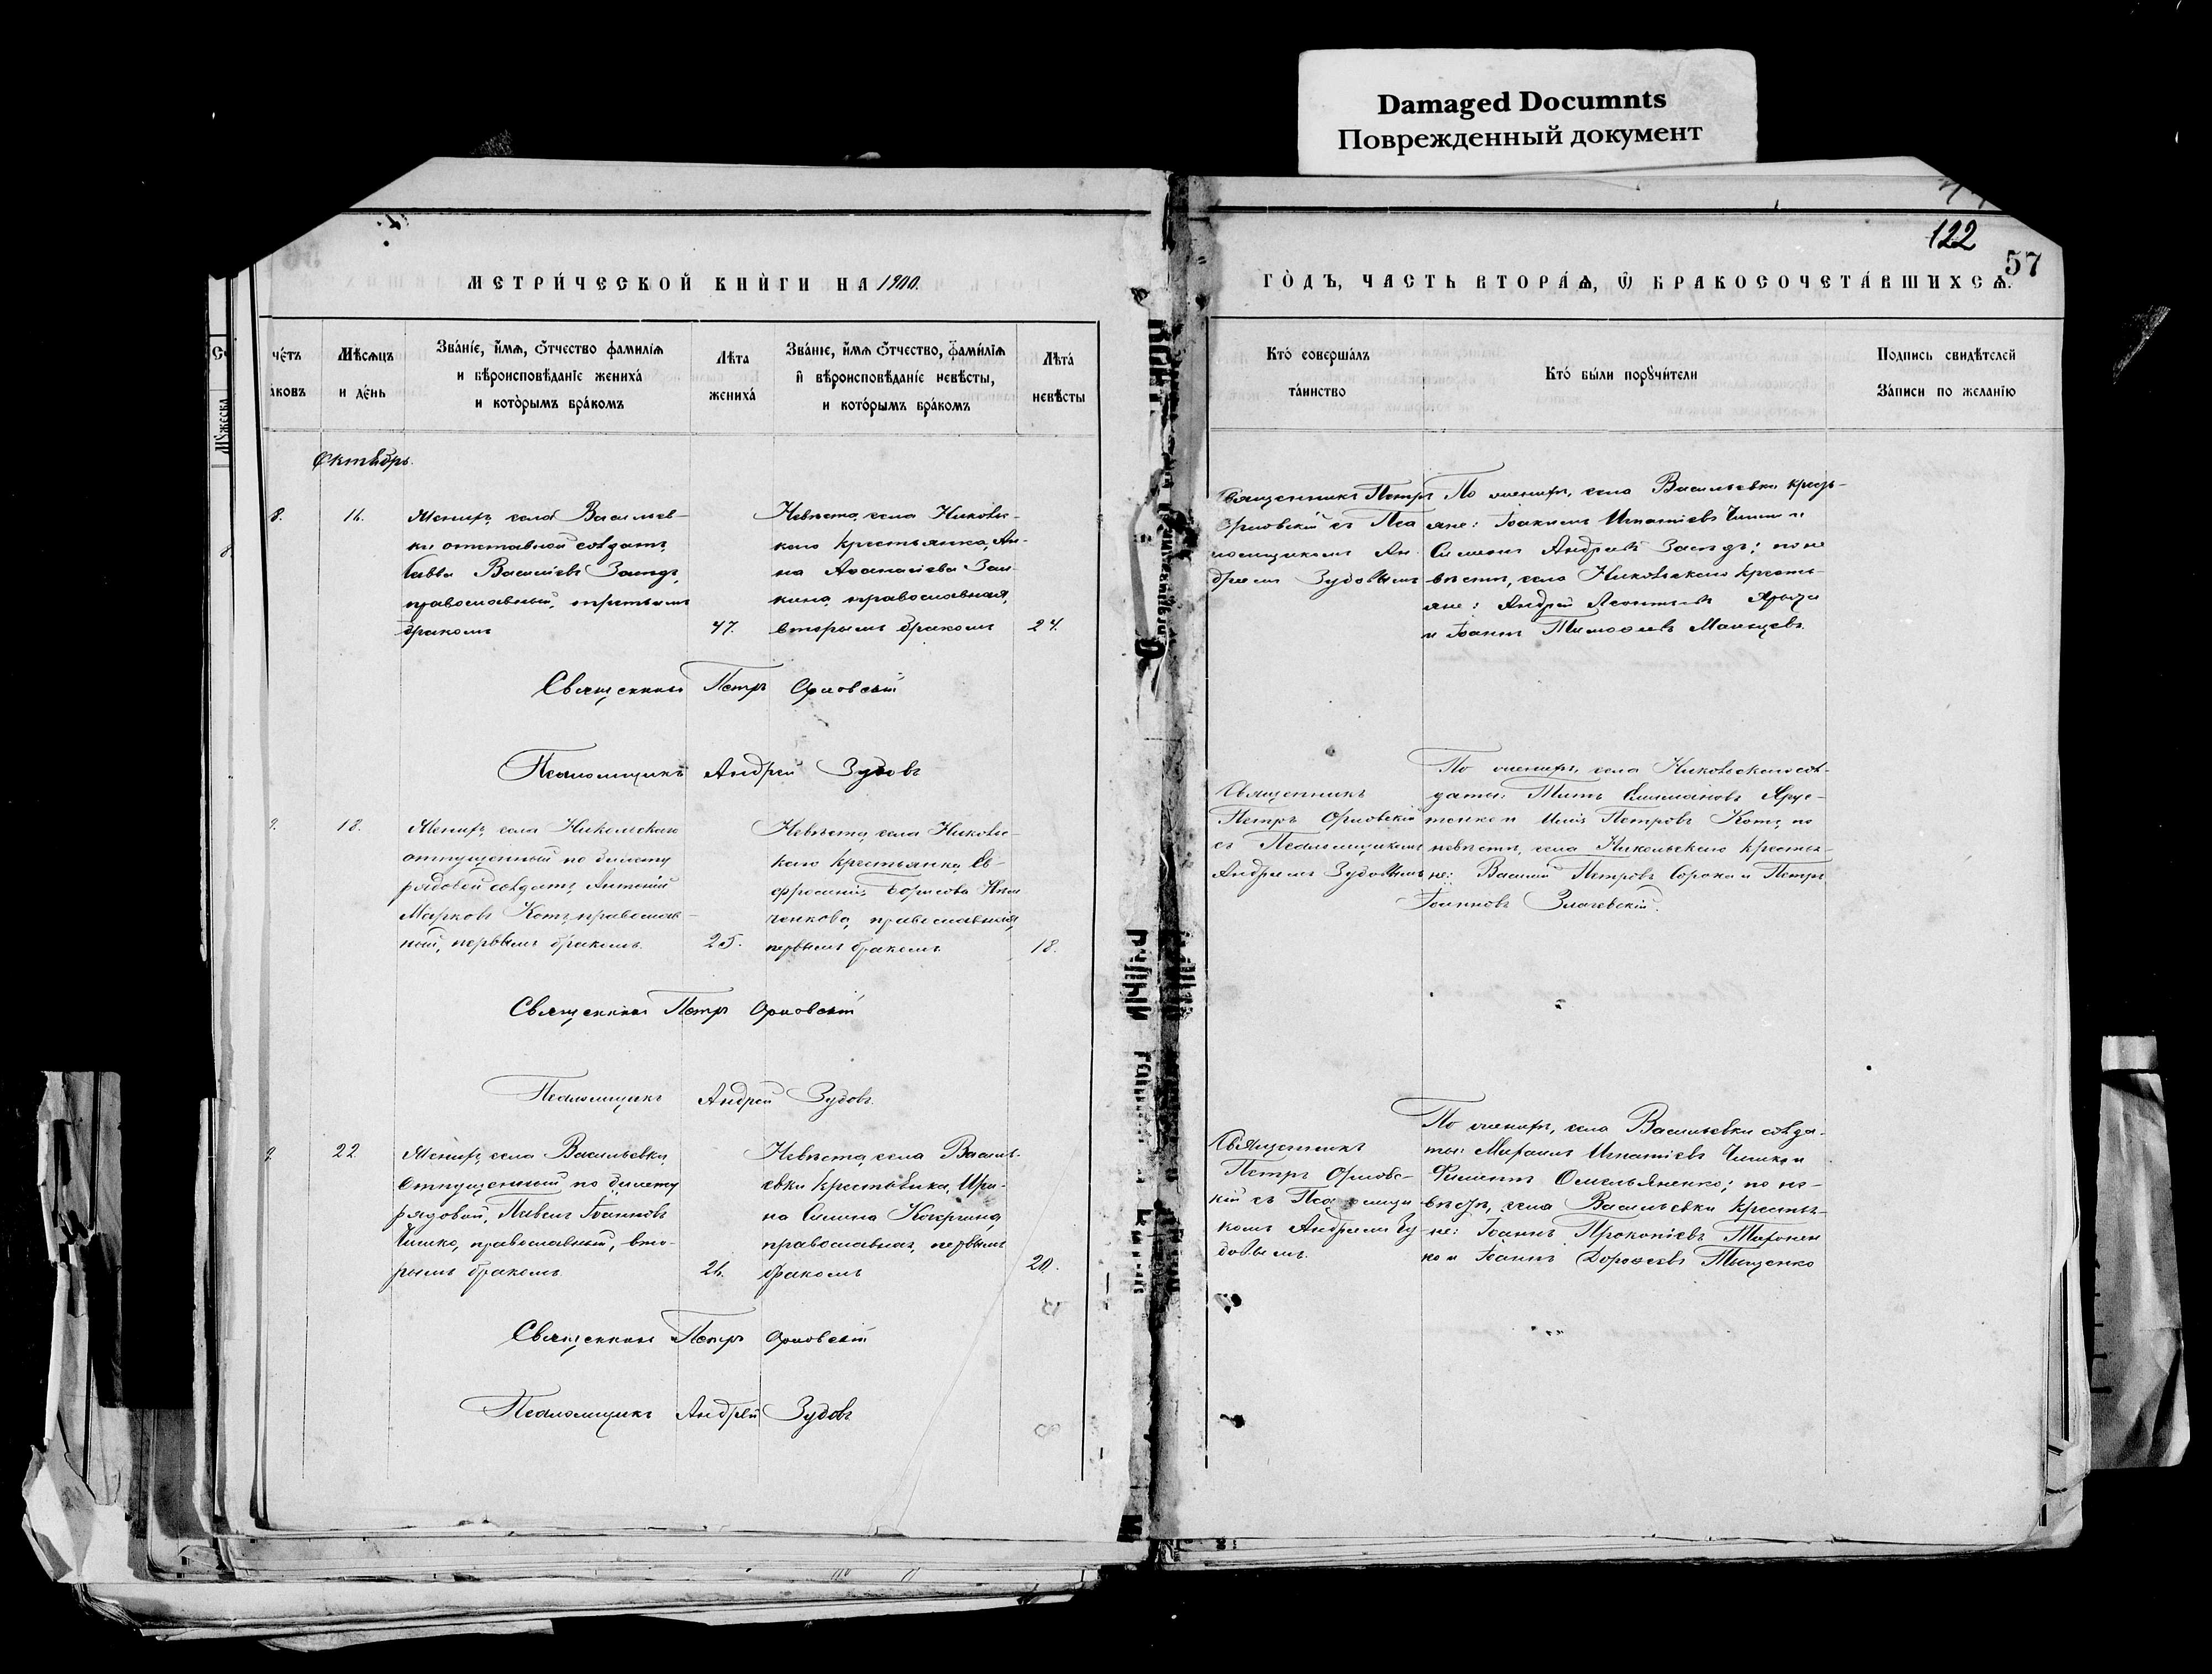 Damaged Documnts
Поврежденный документ
122
57
МЕТРИ́ЧЕСКОЙ КНИ́ГИ НА 1900.
ГО́ДЪ, ЧАСТЬ ВТОРА́Ѧ, Ѽ БРАКОСОЧЕТА́ВШИХСѦ.
че́тъ
а́ковъ
Мѣ́сѧцъ
и де́нь
Зва́нїе, и҆́мѧ, ѻ҆́тчество фами́лїѧ
и вѣроисповѣ́данїе жениха̀
и кото́рымъ бра́комъ
Лѣ́та
жениха̀
Зва́нїе, и҆́мѧ ѻ҆́тчество, фами́лїѧ
и҆ вѣроисповѣ́данїе невѣ́сты,
и кото́рымъ бра́комъ
Лѣта́
невѣ́сты
Кто́ соверша́лъ
та́инство
Кто́ бы́ли порꙋчи́тели
По́дпись свидѣ́телей
За́писи по жела́нїю
Октябрь.
8.
16.
Женихъ, села Васильев-
ки отставной солдатъ,
Савва Василіевъ Заяцъ,
православный, третьимъ
бракомъ
47.
Невѣста, села Николь-
скаго крестьянка, Ан-
на Аѳанасіева Заи-
кина, православная,
вторымъ бракомъ
24.
Священникъ Петръ
Орловскій съ Пса
ломщикомъ Ан
дреемъ Зудовымъ
По женихѣ, села Васильевки кресть-
яне: Іоакимъ Игнатіевъ Чишко и
Симеонъ Андреевъ Заяцъ; по не
вѣстѣ, села Никольскаго кресть-
яне: Андрей Леонтьевъ
и Іоаннъ Тимоѳеевъ Мальцевъ.
Священникъ Петръ Орловскій
Псаломщикъ Андрей Зудовъ
9.
18.
Женихъ, села Никольскаго
отпущенный по билету
рядовой солдатъ, Антоній
Марковъ Котъ, православ-
ный, первымъ бракомъ.
25.
Невѣста, села Николь-
скаго крестьянка, Ев-
фросинія Борисова
православная,
первымъ бракомъ
18.
Священникъ
Петръ Орловскій
съ Псаломщикомъ
Андреемъ Зудовымъ
По женихѣ, села Никольскаго сол-
даты: Титъ
и Илія Петровъ Котъ, по
невѣстѣ, села Никольскаго крестья-
не: Василій Петровъ Сорока и Петръ
Іоанновъ
Священникъ Петръ Орловскій
Псаломщикъ Андрей Зудовъ.
9
22
Женихъ, села Васильевки,
отпущенный по билету
рядовой, Павелъ Іоанновъ
Чишко, православный, вто-
рымъ бракомъ.
26.
Невѣста, села Василь-
евки крестьянка, Ири-
на Сімина Кочергина,
православная, первымъ
бракомъ
20.
Священникъ
Петръ Орловс-
кій съ Псаломщи
комъ Андреемъ Зу
довымъ.
По женихѣ, села Васильевки солда-
ты: Михаилъ Игнатіевъ Чишко и
Филиппъ Омельяненко; по не-
вѣстѣ, села Васильевки крестья-
не: Іоаннъ Прокопіевъ
ко и Іоаннъ Дороѳеевъ Тыщенко
Священникъ Петръ Орловскій
Псаломщикъ Андрей Зудовъ